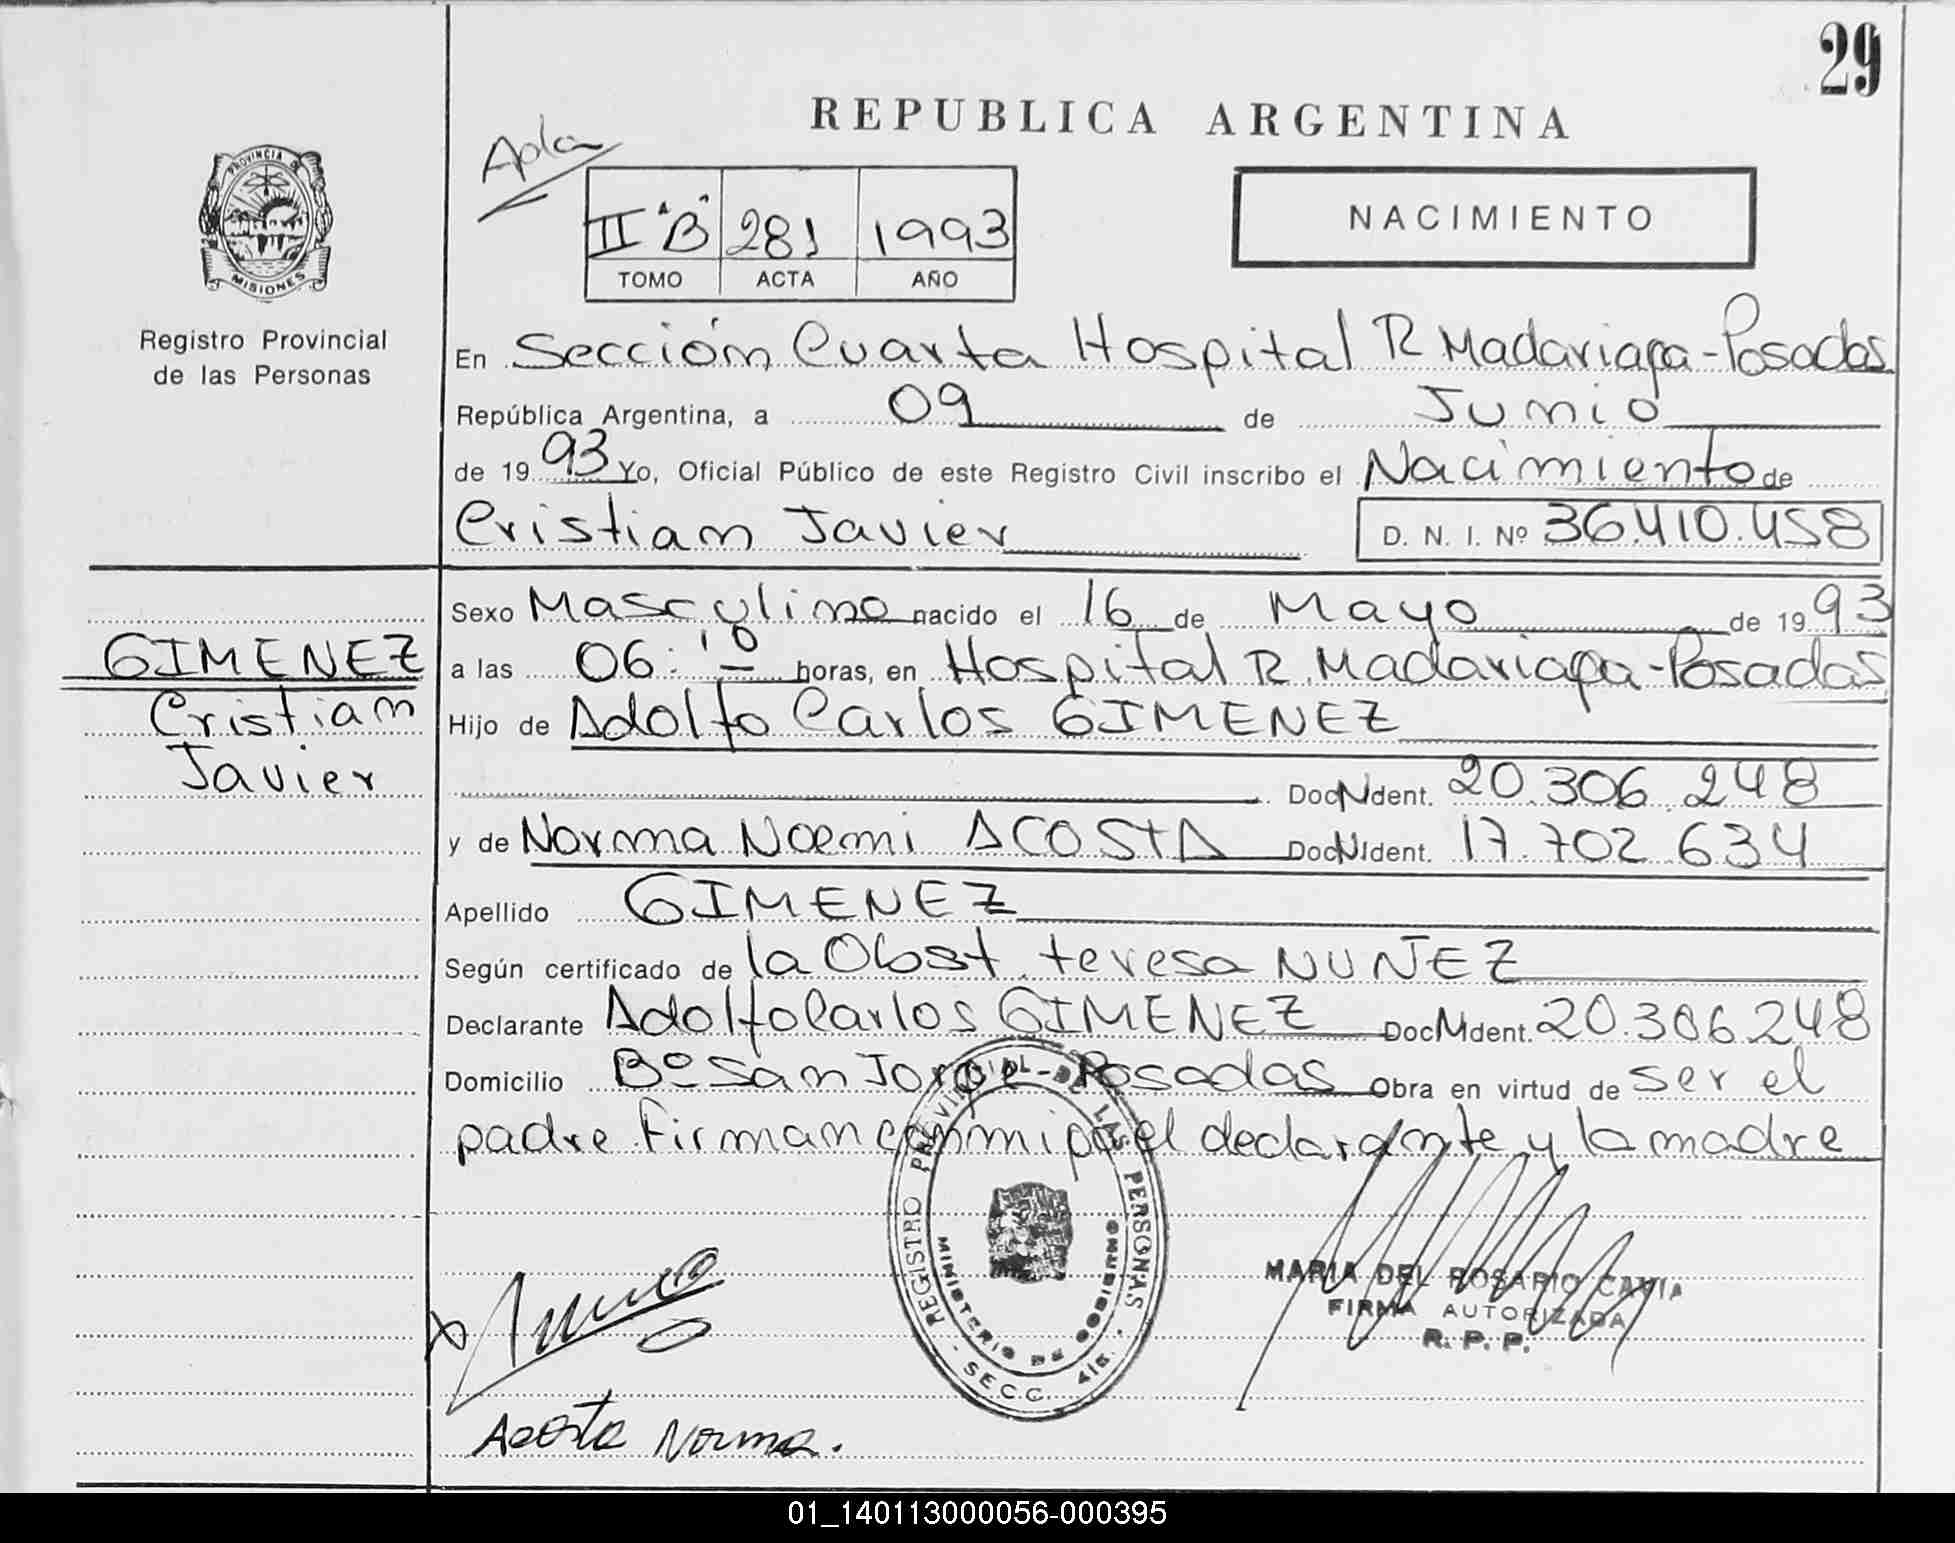 29
REPUBLICA ARGENTINA
PROVINCIA DE
MISIONES
Registro Provincial
de las Personas
II "B" 281 1993
TOMO ACTA AÑO
NACIMIENTO
En Sección Cuarta Hospital R Madariaga-Posadas
República Argentina, a 09 de Junio
de 1993 Yo, Oficial Público de este Registro Civil inscribo el Nacimiento de
Cristian Javier D. N. I. Nº 36.410.458
GIMENEZ
Cristian
Javier
Sexo Masculino nacido el 16 de Mayo de 1993
a las 06:10 horas, en Hospital R. Madariaga-Posadas
Hijo de Adolfo Carlos GIMENEZ
DocNIdent. 20.306.248
y de Norma Noemi ACOSTA DocNIdent. 17.702.634
Apellido GIMENEZ
Según certificado de la Obst. teresa NUÑEZ
Declarante Adolfo Carlos GIMENEZ DocNIdent. 20.306.248
Domicilio Bº San Jorge-Posadas Obra en virtud de ser el
padre firman conmigo el declarante y la madre
REGISTRO PROVINCIAL DE LAS PERSONAS
MINISTERIO DE GOBIERNO
SECC. 4ta.
MARIA DEL ROSARIO
FIRMA AUTORIZADA
R. P. P.
Acosta Norma.
01_140113000056-000395